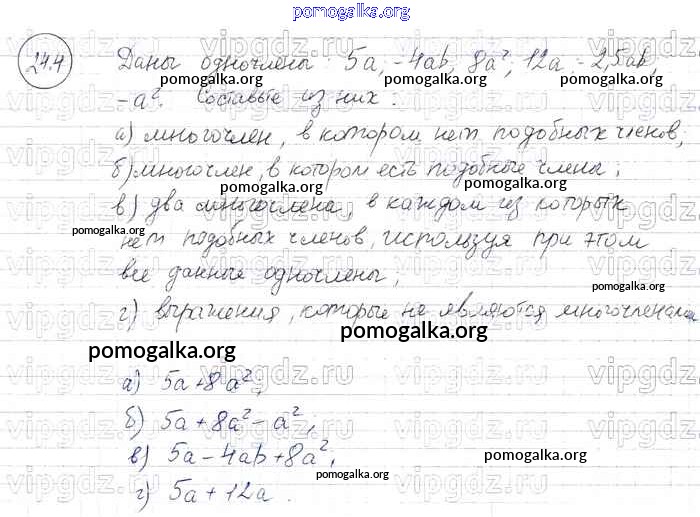 pomogalka.org
24.4 Даны одночлены: 5a, -4ab, 8a², 12a - 2,5ab,
pomogalka.org pomogalka.org
-a². Составьте из них:
а) многочлен, в котором нет подобных членов,
pomogalka.org
б) многочлен, в котором есть подобные члены;
pomogalka.org
в) два многочлена, в каждом из которых
pomogalka.org
нет подобных членов, используя при этом
все данные одночлены;
pomogalka.org
г) выражения, которые не являются многочленами
pomogalka.org
pomogalka.org
а) 5a+8a²;
б) 5a+8a²-a²,
в) 5a-4ab+8a²,
pomogalka.org
pomogalka.org
г) 5a+12a.
pomogalka.org
vipgdz.ru